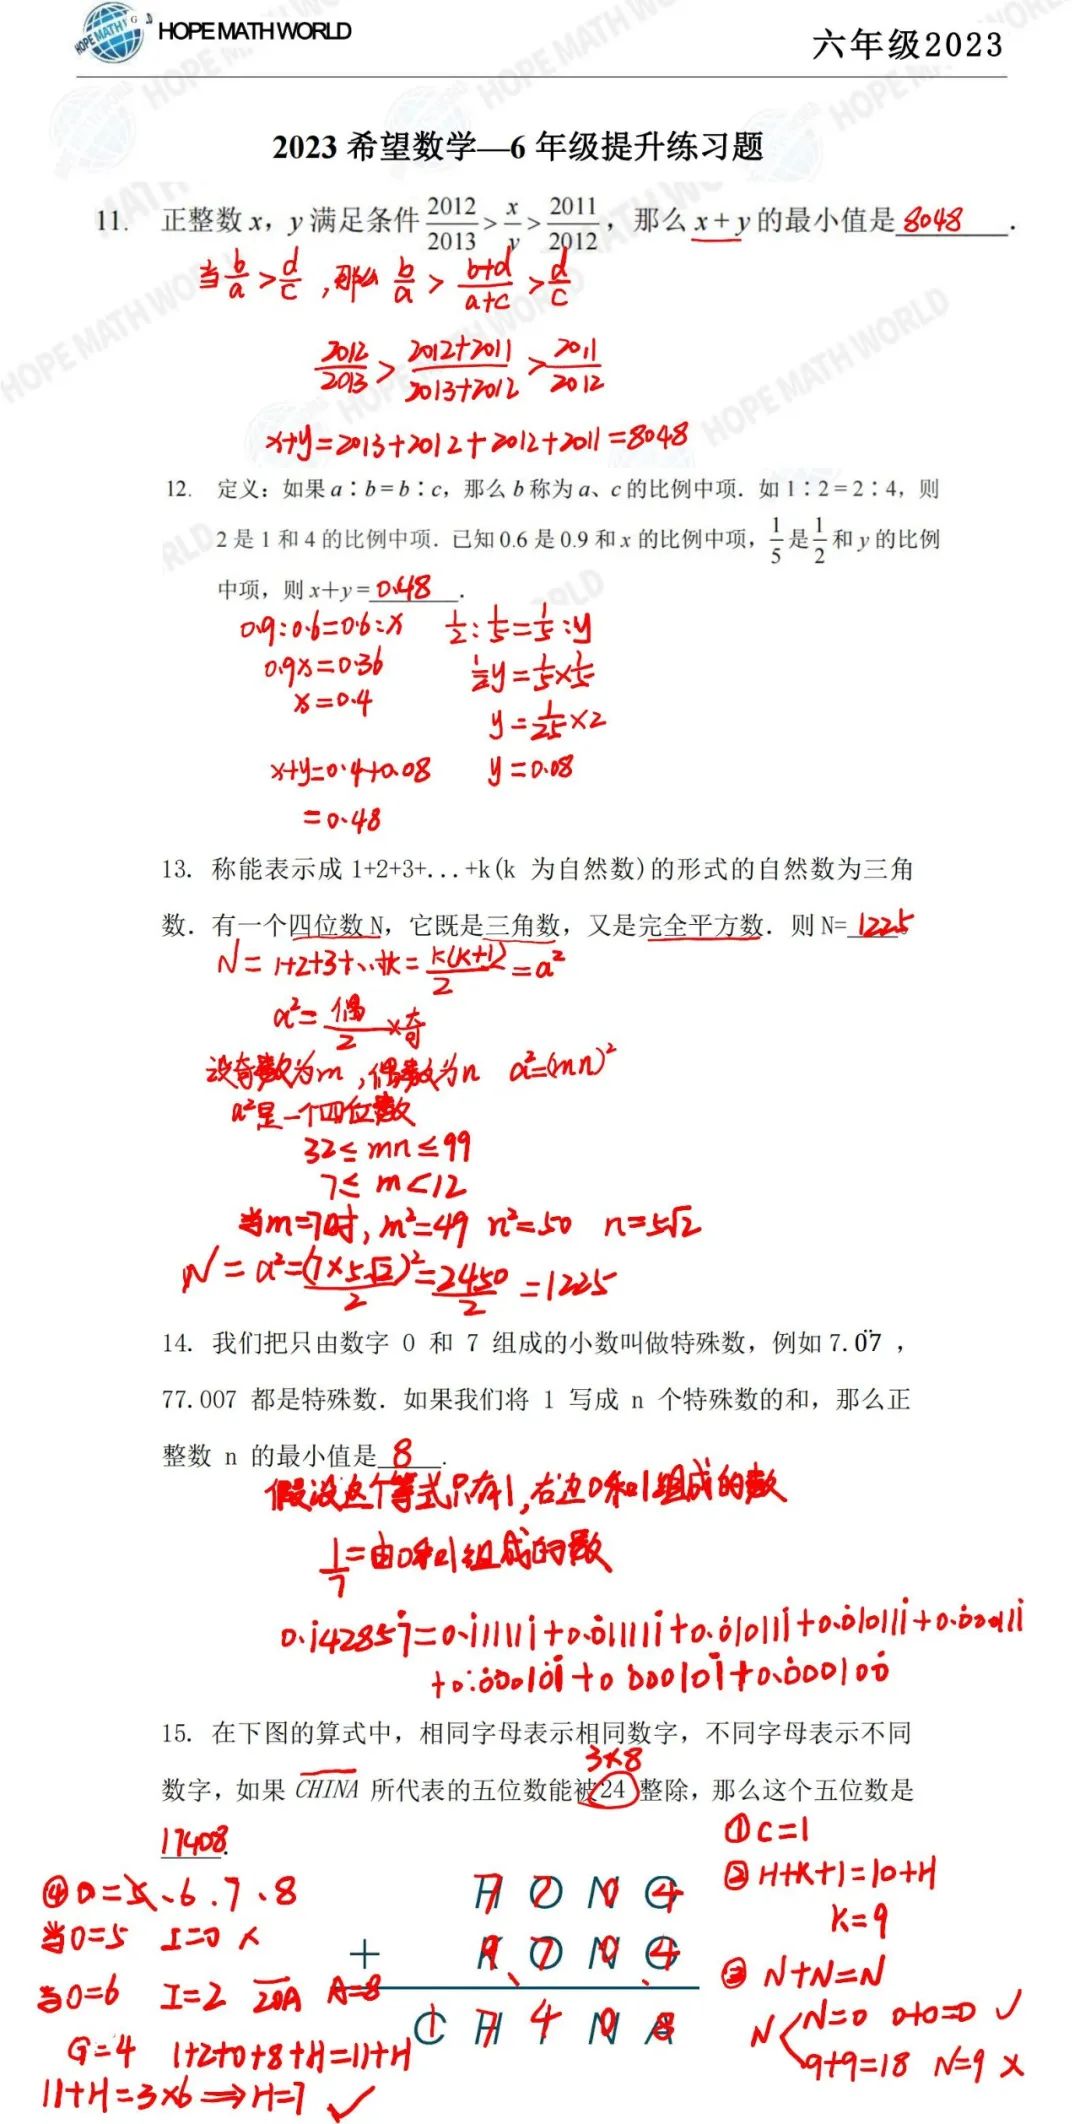 HOPE MATH WORLD
六年级2023
2023 希望数学—6 年级提升练习题
11. 正整数 x，y 满足条件 2012/2013 > x/y > 2011/2012，那么 x + y 的最小值是 8048 .
当 b/a > d/c , 那么 b/a > (b+d)/(a+c) > d/c
2012/2013 > (2012+2011)/(2013+2012) > 2011/2012
x+y=2013+2012+2012+2011=8048
12. 定义：如果 a∶b=b∶c，那么 b 称为 a、c 的比例中项．如 1∶2=2∶4，则
2 是 1 和 4 的比例中项．已知 0.6 是 0.9 和 x 的比例中项，1/5 是 1/2 和 y 的比例
中项，则 x+y= 0.48 .
0.9:0.6=0.6:x 1/2:1/5=1/5:y
0.9x=0.36 1/2y=1/5×1/5
x=0.4 y=1/25×2
x+y=0.4+0.08 y=0.08
=0.48
13. 称能表示成 1+2+3+...+k(k 为自然数)的形式的自然数为三角
数．有一个四位数 N，它既是三角数，又是完全平方数．则 N= 1225
N=1+2+3+...+k=k(k+1)/2=a²
a²=偶/2×奇
设奇数为m,偶数为n a²=(mn)²
a²是一个四位数
32≤mn≤99
7≤m<12
当m=7时, m²=49 n²=50 n=5√2
N=a²=(7×5√2)²/2=2450/2=1225
14. 我们把只由数字 0 和 7 组成的小数叫做特殊数，例如 7.0̇7̇ ，
77.007 都是特殊数．如果我们将 1 写成 n 个特殊数的和，那么正
整数 n 的最小值是 8 .
假设这个等式只有1,右边0和1组成的数
1/7=由0和1组成的数
0.1̇42857̇=0.1̇11111̇+0.0̇11111̇+0.0̇10111̇+0.0̇10111̇+0.0̇00111̇
+0.0̇00101̇+0.000101̇+0.0̇00100̇
15. 在下图的算式中，相同字母表示相同数字，不同字母表示不同
3×8
数字，如果 CHINA 所代表的五位数能被 24 整除，那么这个五位数是
17408.
①C=1
②H+K+1=10+H
K=9
③N+N=N
N N=0 0+0=0 ✓
9+9=18 N=9 ×
④O=5、6、7、8
当O=5 I=0 ×
当O=6 I=2 20A A=8
G=4 1+2+0+8+H=11+H
11+H=3×6⟹H=7 ✓
H O N G
7 7 0 4
+ K O N G
9 7 0 4
C H I N A
1 7 4 0 8